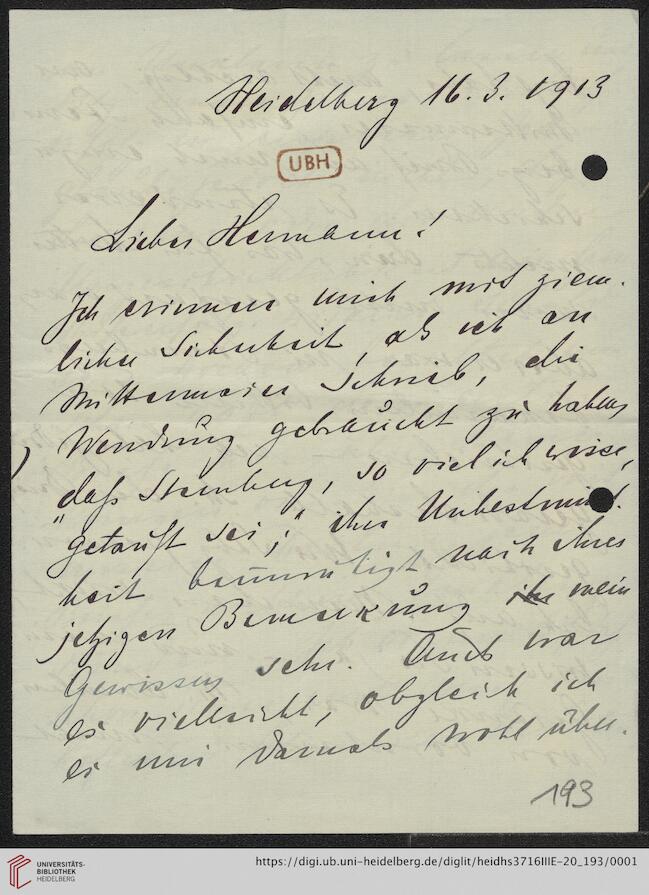 Heidelberg 16. 3. 1913
UBH
Lieber Hermann!
Ich erinnere mich mit ziem-
licher Sicherheit, als ich an
Mittermaier schrieb, die
Wendung gebraucht zu haben,
daß Sternberg, so viel ich wisse,
"getauft sei;" ihre Unbestimmt-
heit beunruhigt nach Ihrer
jetzigen Bemerkung mein
Gewissen sehr. Auch war
es vielleicht, obgleich ich
es mir damals wohl über-
193
UNIVERSITÄTS-
BIBLIOTHEK
HEIDELBERG
https://digi.ub.uni-heidelberg.de/diglit/heidhs3716IIIE-20_193/0001